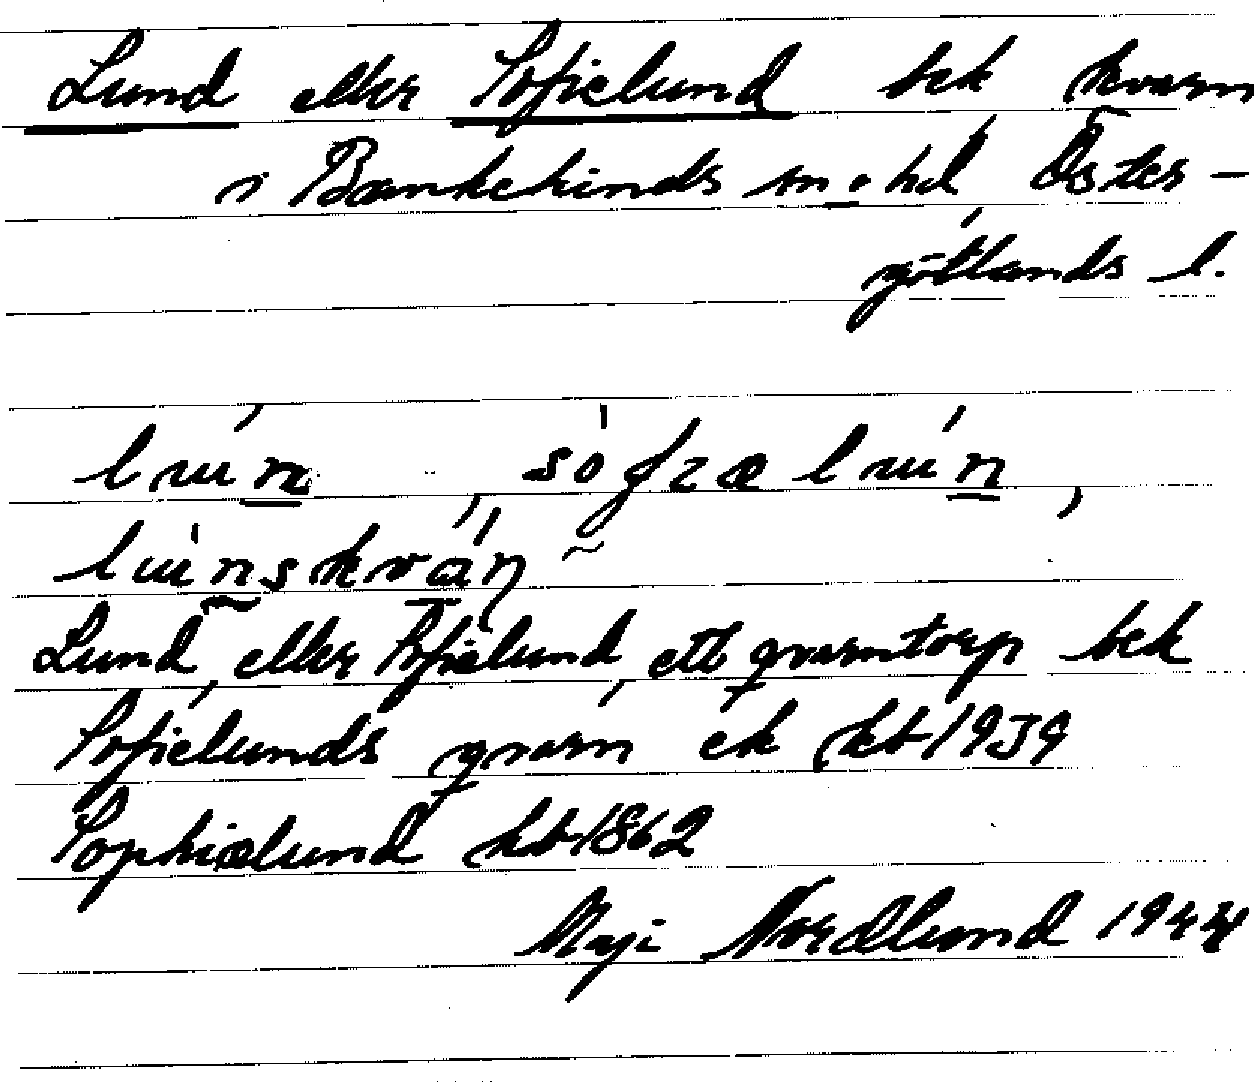 Lund eller Sofielund bek kvarn
i Bankekinds sn o hd Öster-
götlands l.
Lund, eller Sofielund, ett qvarntorp bek
Sofielunds qvarn ek hb 1939
Sophielund hb 1862
Maji Nordlund 1944